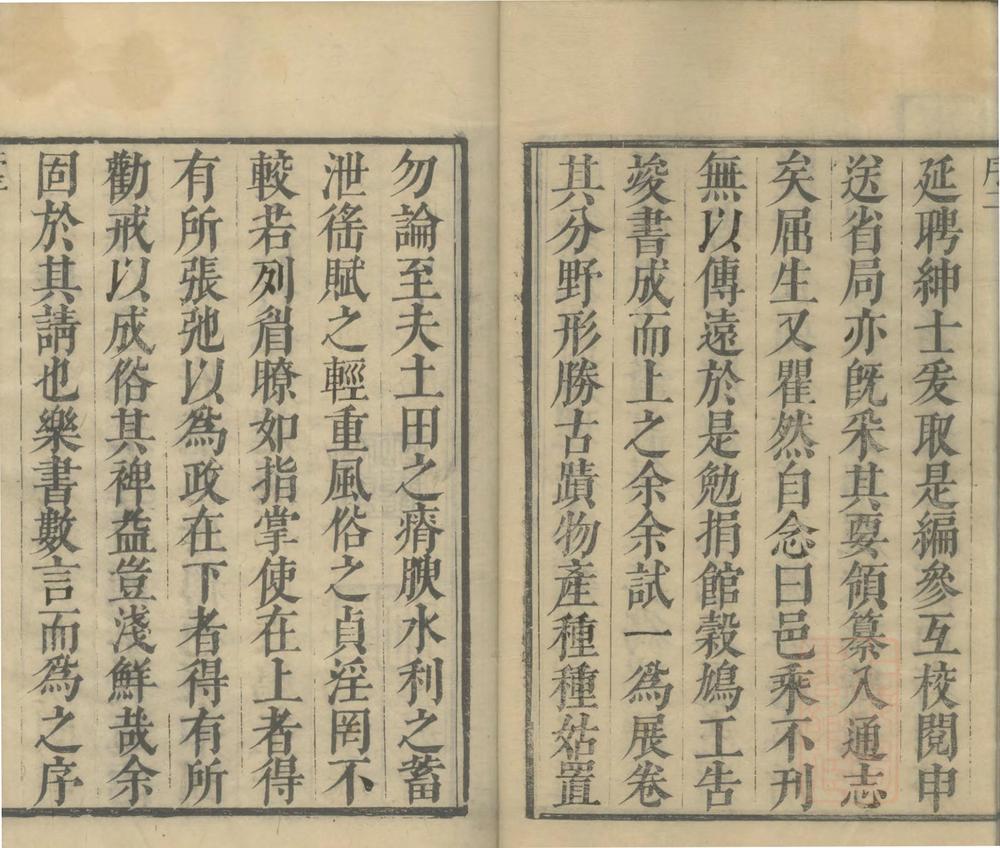 延聘紳士爰取是編參互校閱申
送省局亦旣采其要領纂入通志
矣屈生又瞿然自念曰邑乘不刊
無以傳遠於是勉捐館穀鳩工告
竣書成而上之余余試一為展卷
其分野形勝古蹟物產種種姑置
勿論至夫土田之瘠腴水利之蓄
泄徭賦之輕重風俗之貞淫罔不
較若列眉瞭如指掌使在上者得
有所張弛以為政在下者得有所
勸戒以成俗其裨益豈淺鮮哉余
固於其請也樂書數言而為之序